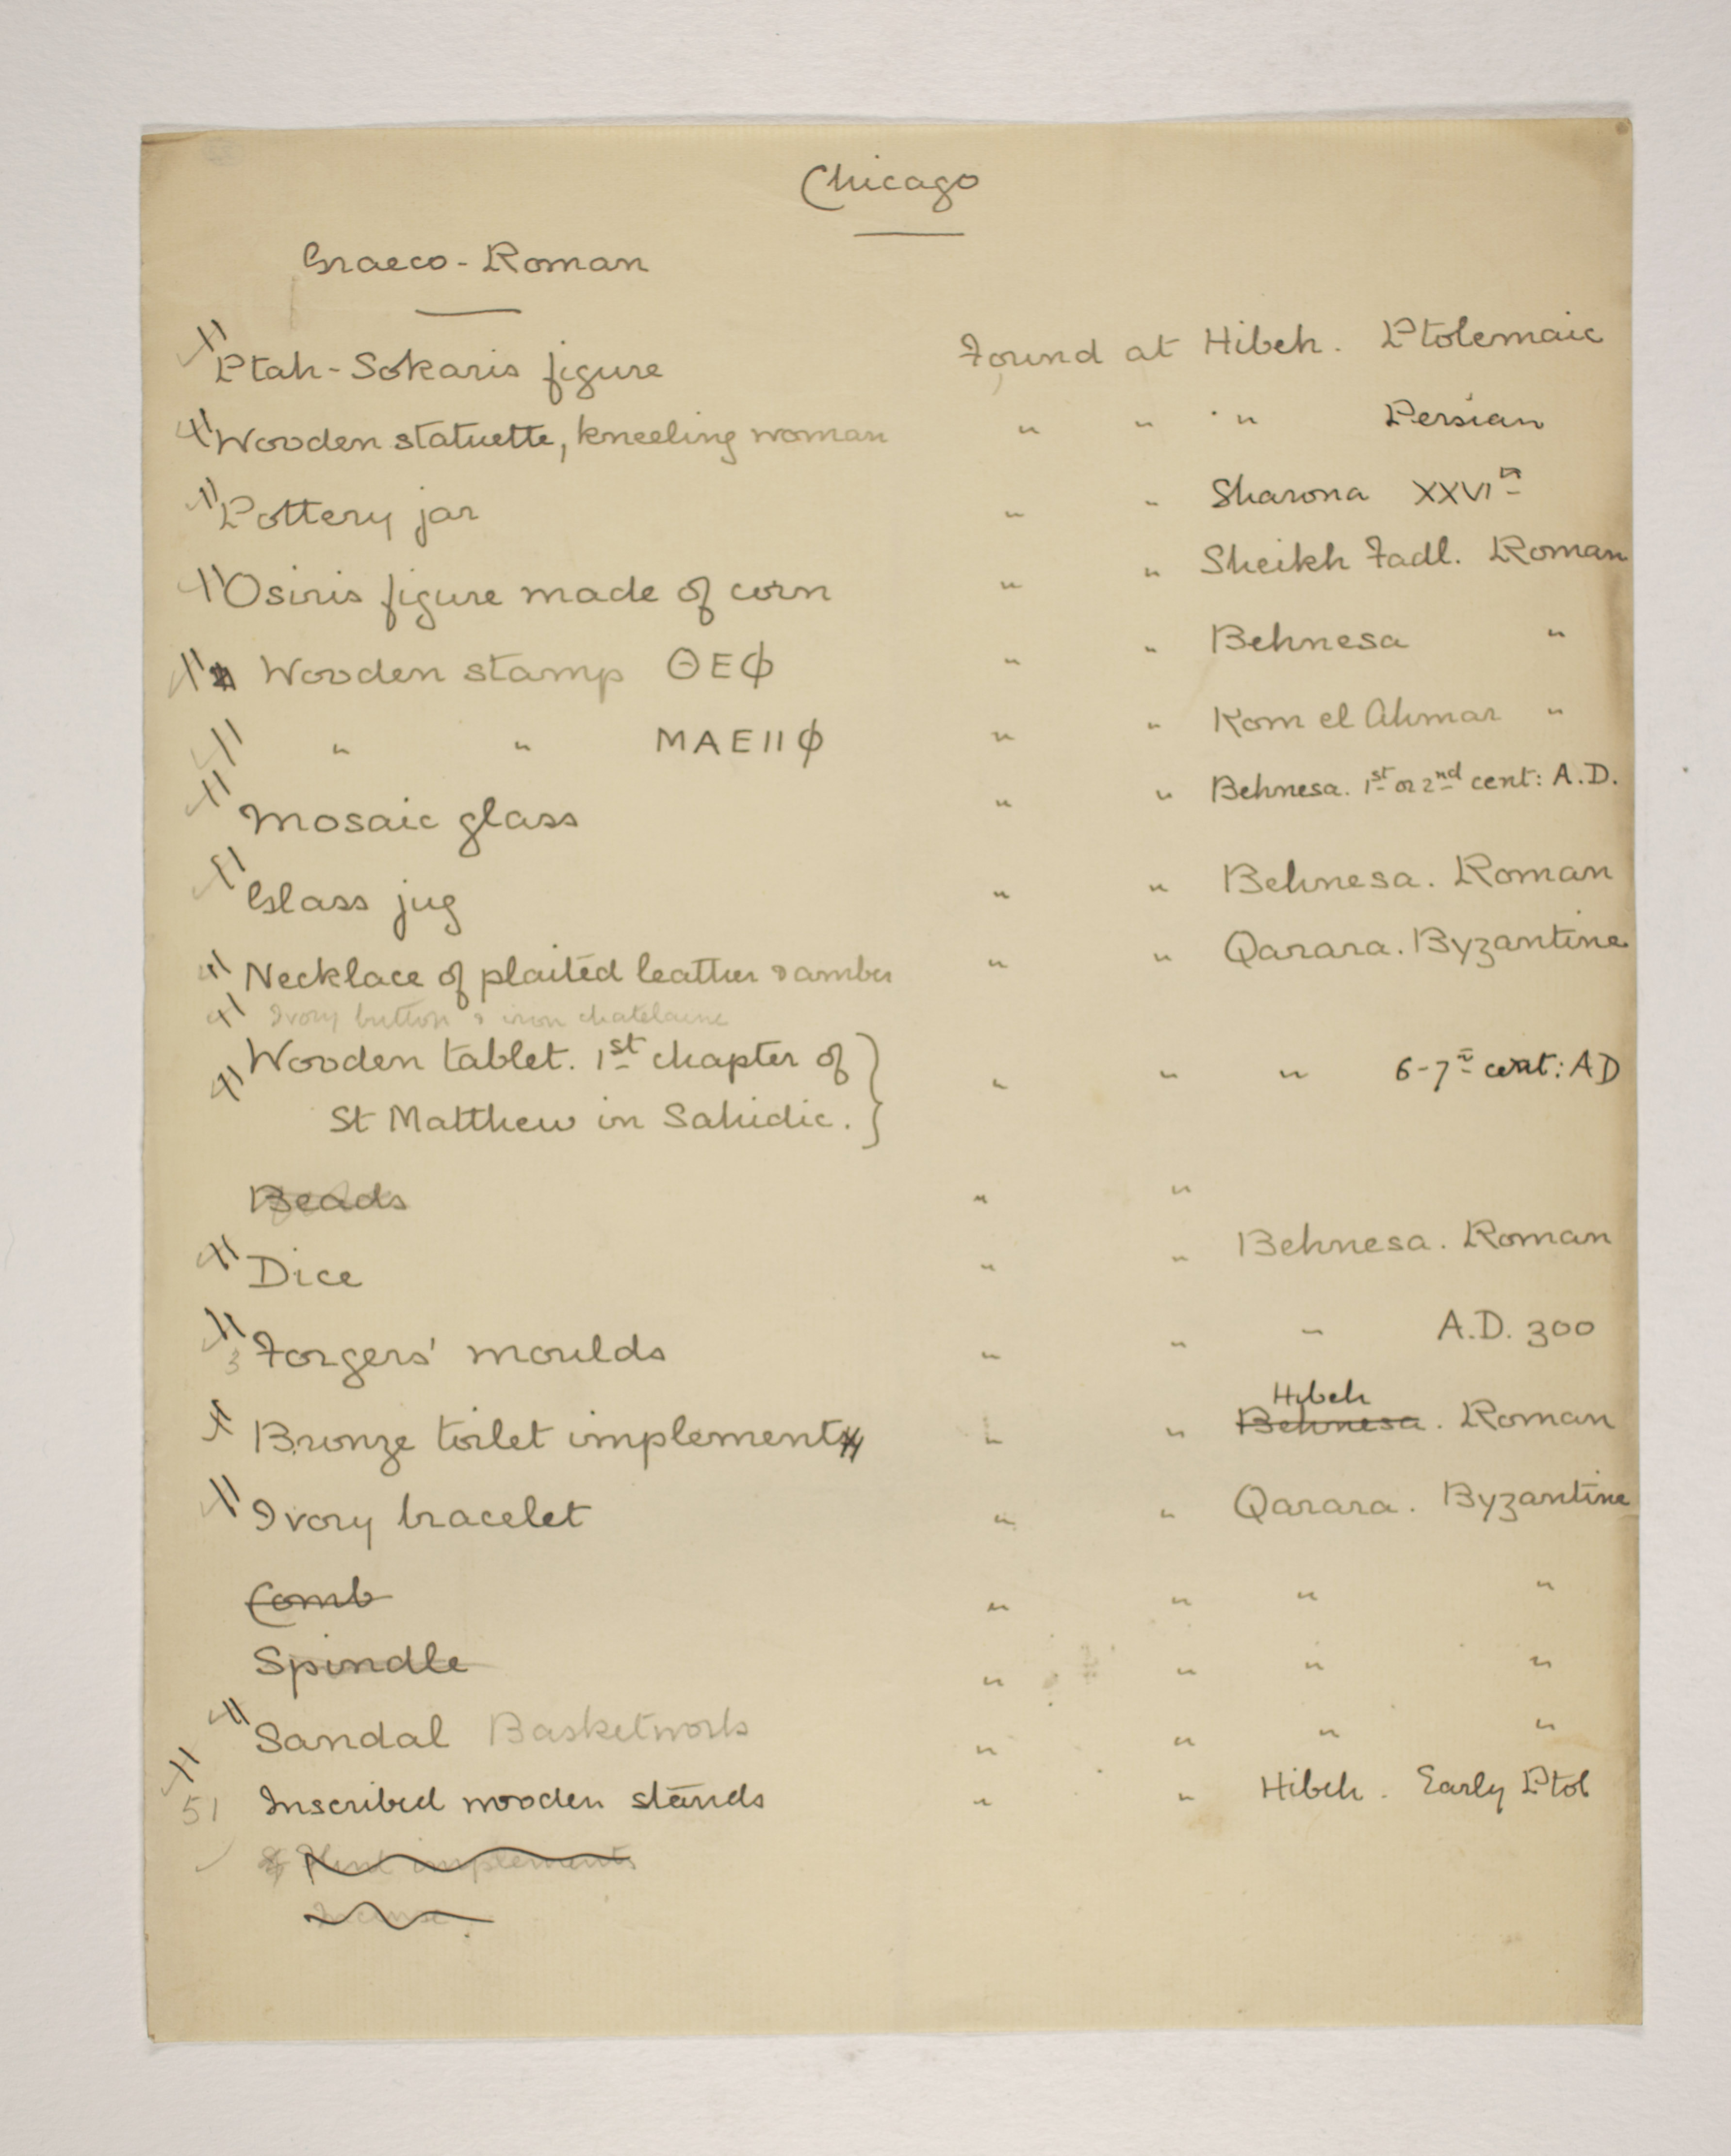 Chicago
Graeco-Roman
Ptah-Sokaris figure Found at Hibeh. Ptolemaic
Wooden statuette, kneeling woman " " " Persian
Pottery jar " " Sharona XXVIth
Osiris figure made of corn " " Sheikh Fadl. Roman
Wooden stamp ΘΕΦ " " Behnesa "
" " ΜΑΕΙΙΦ " " Kom el Ahmar "
Mosaic glass " " Behnesa. 1st or 2nd cent: A.D.
Glass jug " " Behnesa. Roman
Necklace of plaited leather & amber " " Qarara. Byzantine
Ivory button & iron chatelaine
Wooden tablet. 1st chapter of " " " 6-7th cent: AD
St Matthew in Sahidic.
Beads " "
Dice " " Behnesa. Roman
3 Forgers' moulds " " " A.D. 300
Hibeh
Bronze toilet implement " " Behnesa. Roman
Ivory bracelet " " Qarara. Byzantine
Comb " " " "
Spindle " " " "
Sandal Basketwork " " " "
51 Inscribed wooden stands " " Hibeh. Early Ptol
Flint implements